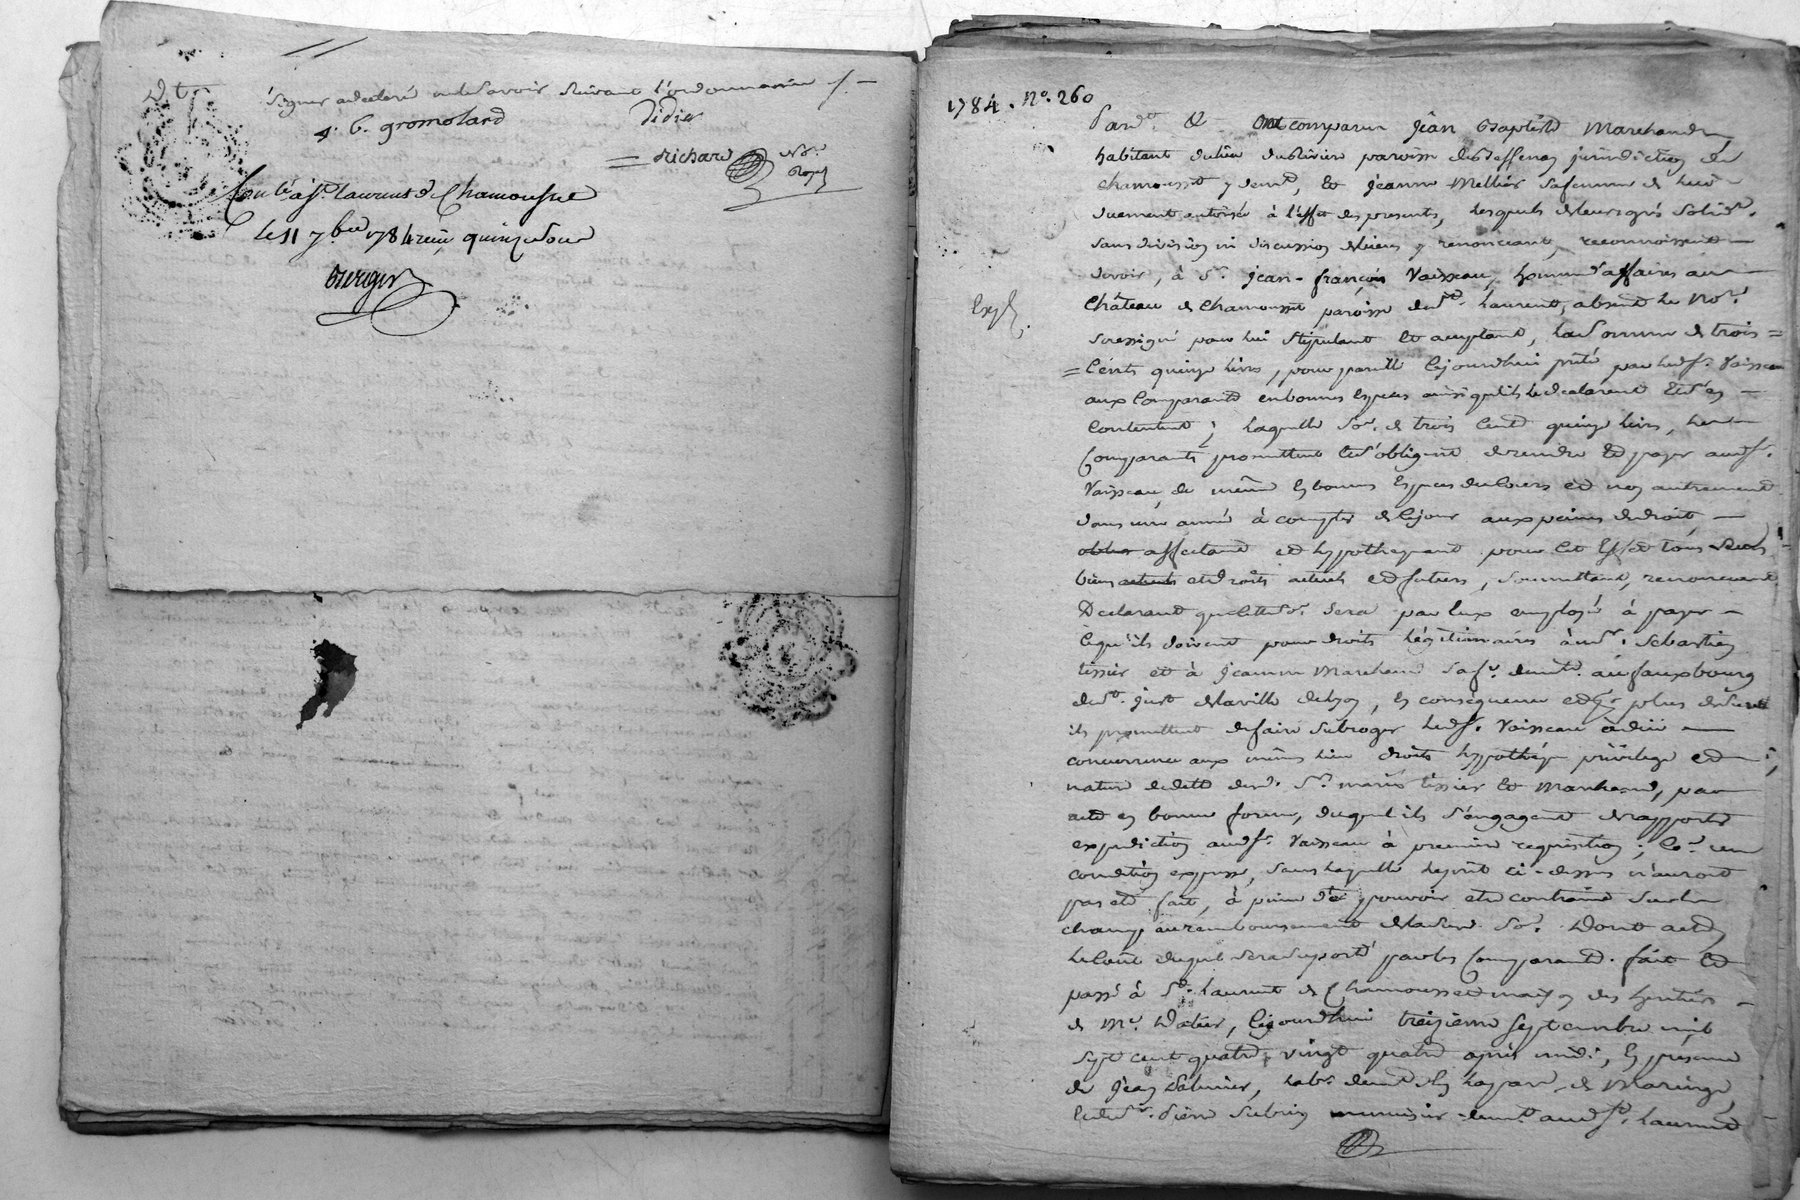 signer a declaré ne le savoir suivant l'ordonnance /.
g. b. gromolard Didier
= Richard No.re Royal
Con.lé a s.t laurent d Chamousset
le 11 7.bre 1784 reçu quinze sous
Berger
1784. N.o 260
Pard.t & Ont comparu Jean Baptiste Marchand
habitant du lieu du paroisse des jurisdiction de
Chamousset y dem.t, Et Jeanne Mellier sa femme de lui
duement autorisée à l'effet des presents, lesquels de leurs grés solid.t
sans division ni discussion de biens y renonceant, reconnoissent
devoir, à S.r Jean-françois Vaisseau, homme d'affaires au
Château de Chamousset paroisse de S.t laurent, absent le No.re
Exp.
soussigné pour lui stipulant et acceptant, la somme de trois =
= Cents quinze livres, pour pareille cejourdhui prêté par led.s.r Vaisseau
aux Comparants en bonnes especes ainsi qu'ils le declarent Et s'en
Contentent; laquelle So.e de trois Cent quinze livres, les
Comparants promettent et s'obligent de rendre Et payer aud.s.r
Vaisseau, de même En bonnes Especes de cours et non autrement
dans une année à compter de ce jour aux peines de droit,
affectant et hypothequant pour cet Effet tous
biens actuels et droits actuels et futurs, soumettant, renonceant
Declarant que cette So.e sera par Eux employée à payer
ce qu'ils doivent pour droits légitimaires à S.r Sebastien
tissier et à Jeanne Marchand sa f.e dem.t au fauxbourg
de S.t just de la ville de Lyon, En consequence et p.r plus de sureté
ils promettent de faire subroger led.s.r Vaisseau à düe
concurrence aux mêmes lieu droits hypothéque privilege et
nature de dette desd. S.rs mariés tissier Et Marchand, par
acte en bonne forme, duquel ils s'engagent de rapporter
expedition aud.s.r Vaisseau à premiere requisition; Ce. une
condition expresse, sans laquelle le prêt ci-dessus n'auroit
pas eté fait, à peine d'en pouvoir etre contraint sur le
champ au remboursement de lad. So.e Dont acte
le Cout duquel sera suporté par les Comparants. fait Et
passé à S.t laurent de Chamousset maison des heritiers
de M.e Datier, Cejourdhui treizieme septembre mil
sept cent quatre vingt quatre après midi, En présence
de Jean hab.t dem.t En la par.e de Maringe,
Et de S.r Pierre Subrin menuisier dem.t aud.s.t laurent